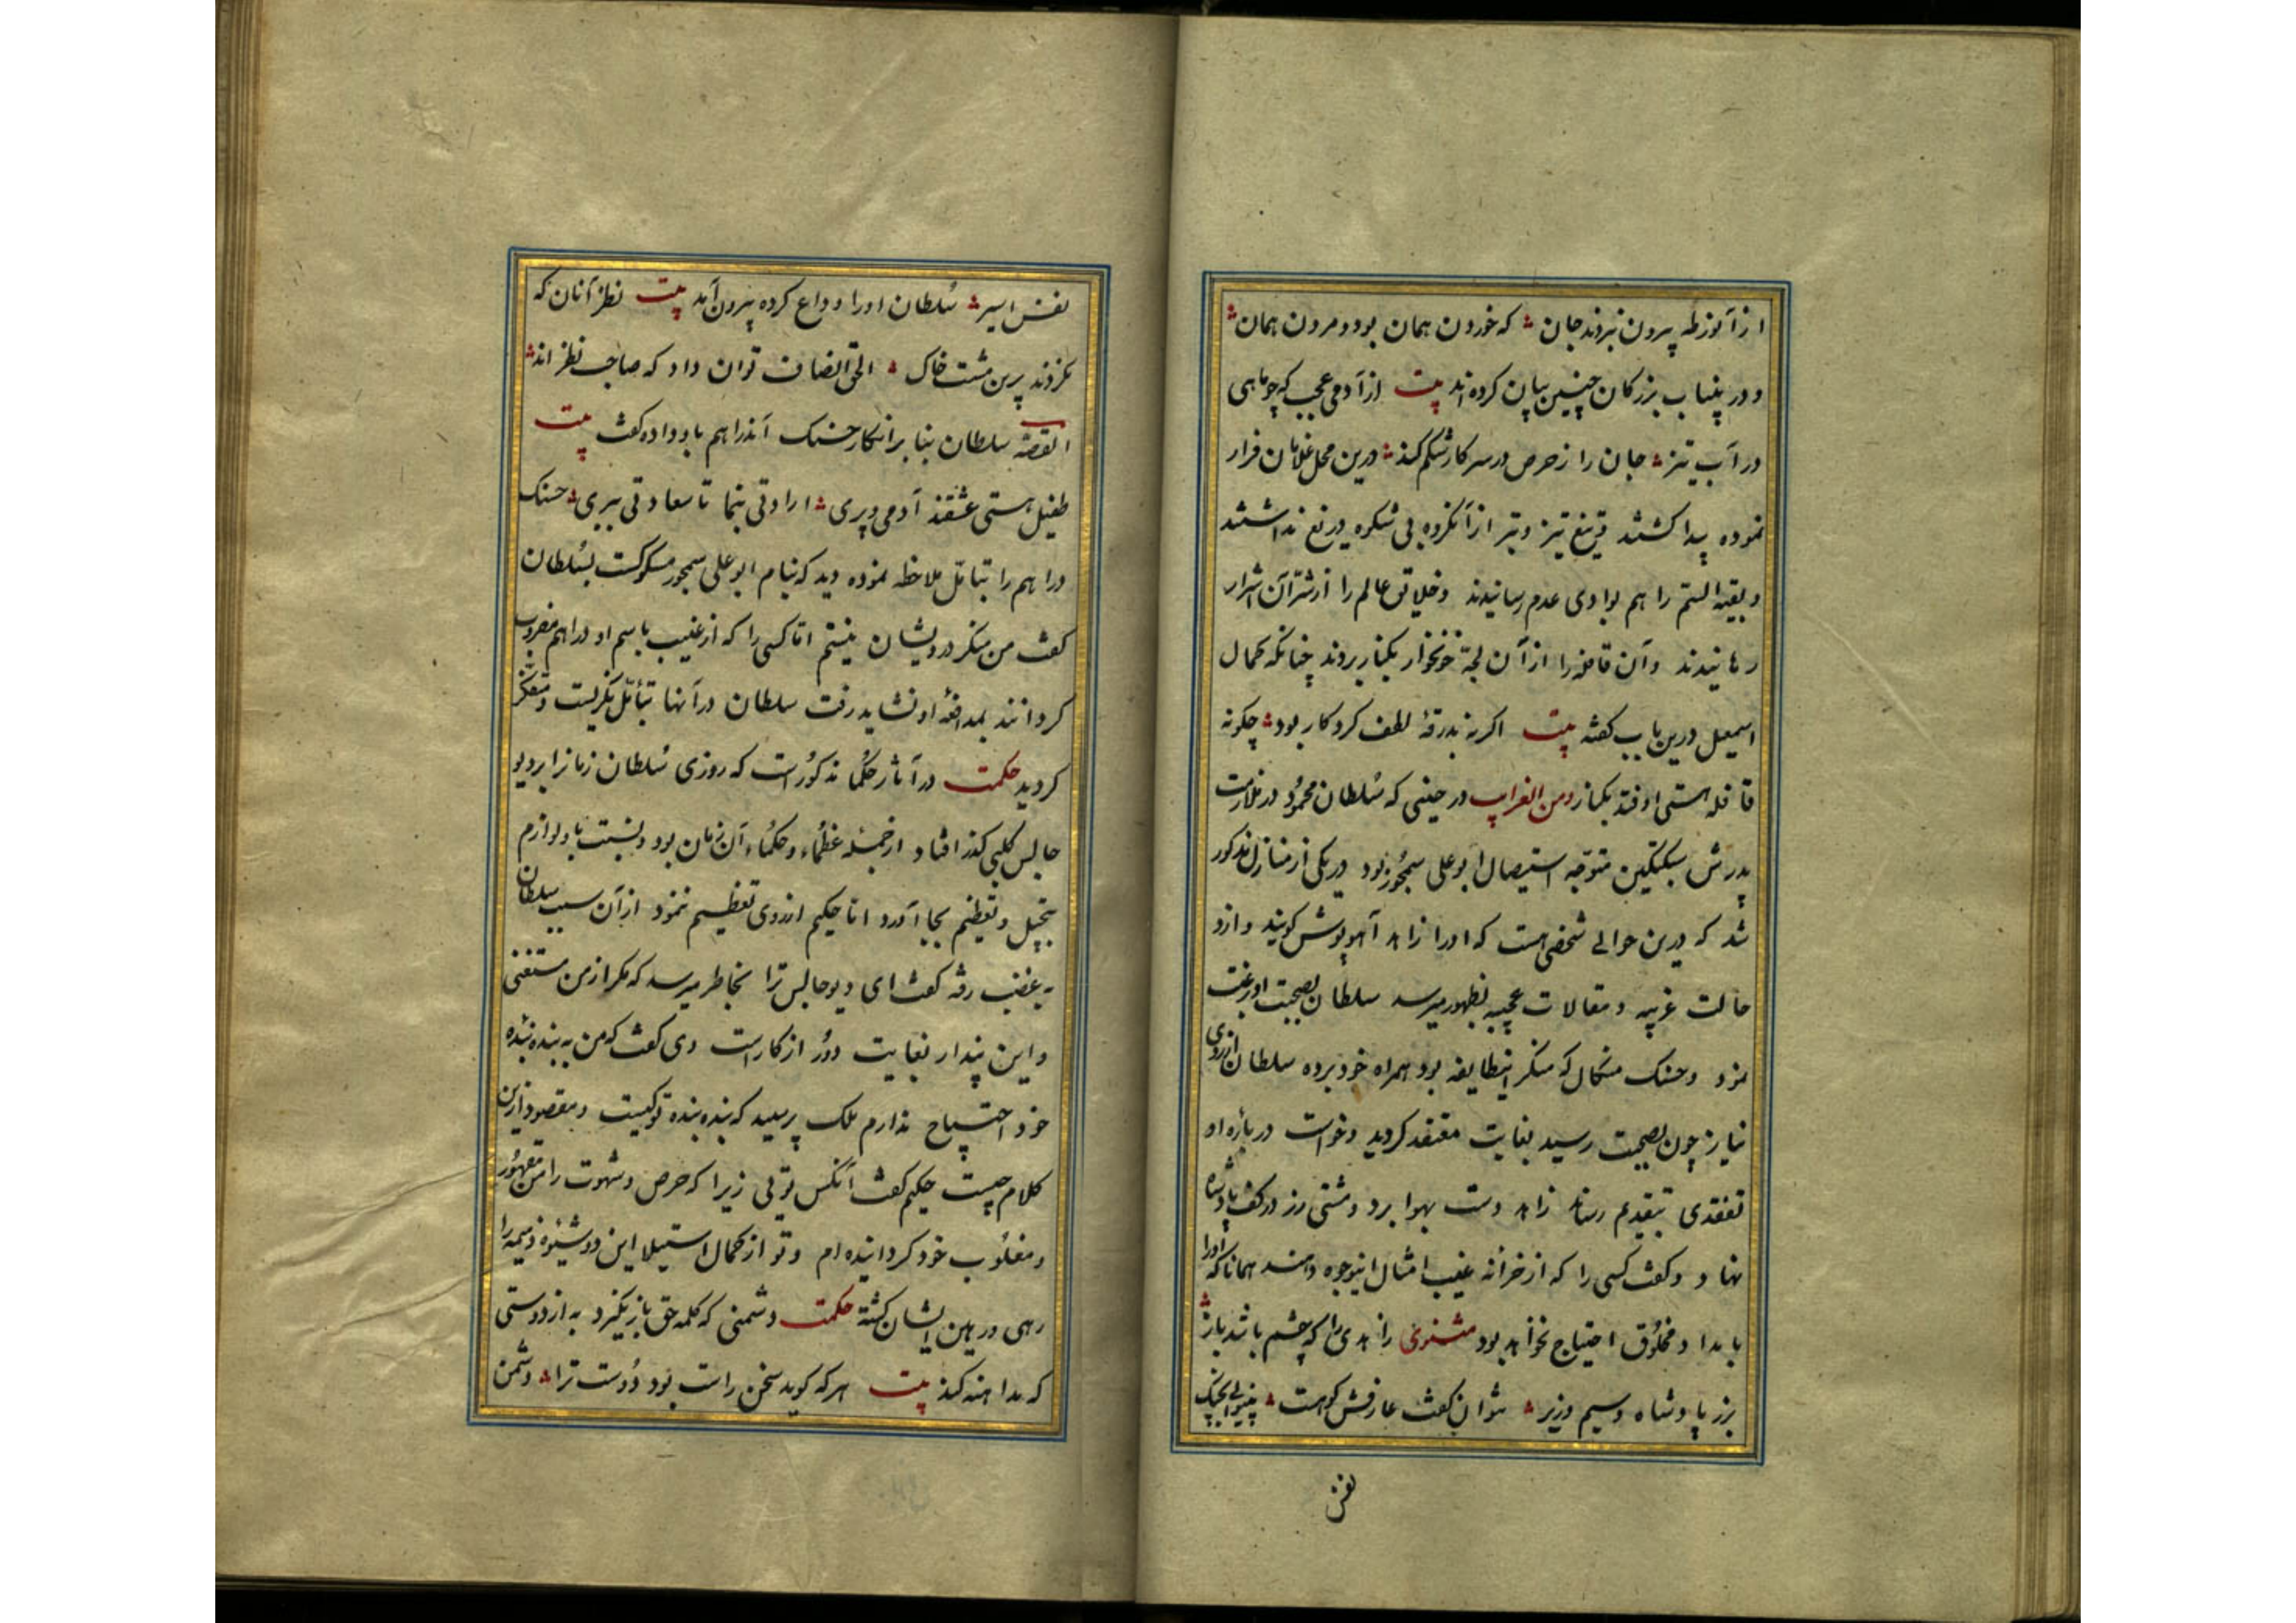 از آنورطه بیرون نبردند جان ؞ که خوردن همان بود و مردن همان ؞
و در پنباب بزرگان چنین بیان کرده اند بیت از آدمی عجب که چو ماهی
در آب تیز ؞ جان را ز حرص در سر کار شکم کند ؞ درین محل غلامان فرار
نموده پیدا کشتند تیغ تیز و تبر از آنکروه بی شکوه دریغ نداشتند
و بقیه الستم را هم بوادی عدم رسانیدند و خلایق عالم را از شر آن اشرار
رهانیدند و آن قافله را از آن لجهٔ خونخوار بکنار بردند چنانکه کمال
اسمعیل درین باب کفته بیت اکر نه بدرقهٔ لطف کردکار بود ؞ چکونه
قافله هستی اوفتد بکنار ومن الغرایب در حینی که سُلطان محمُود در ملازمت
پدرش سبکتکین متوجه استیصال ابو علی سمجُور بود در یکی از منازل مذکور
شد که درین حوالی شخصی هست که او را زاهد آهوپوش کویند و ازو
حالت غریبه و مقالات عجیبه بظهور میرسد سلطان بصحبت او رغبت
نمود و حسنک میکال که منکر اینطایفه بود همراه خود برده سلطان از روی
نیاز چون بصحبت رسید بغایت معتقد کردید و خواست در بارهٔ او
تفقدی بتقدیم رساند زاهد دست بهوا برد و مشتی زر در کف پادشاه
نهاد و کفت کسی را که از خزانه غیب امثال اینوجوه دهند همانا که او را
بامدا و مخلُوق احتیاج نخواهد بود مثنوی زاهدی را که چشم باشد باز ؞
بزر پادشاه و سیم وزیر ؞ نتوان کفت عارفش که هست ؞
نفس
نفس اسیر ؞ سُلطان او را وداع کرده بیرون آمد بیت نظر آنان که
نکردند برین مشت خاک ؞ الحق انصاف توان داد که صاحب نظر اند ؞
القصّه سلطان بنا بر انکار حسنک آنذراهم باو داده کفت بیت
طفیل هستی عشقند آدمی و پری ؞ ارادتی بنما تا سعادتی ببری ؞ حسنک
دراهم را بتأمّل ملاحظه نموده دید که بنام ابو علی سمجور مسکوکست بسُلطان
کفت من منکر درویشان نیستم اما کسی را که از غیب باسم او دراهم مضروب
کردانند بمدافعهٔ او نشاید رفت سلطان در آنها بتأمّل نکریست و متفکّر
کردید حکمت در آثار حکُما مذکورُاست که روزی سُلطان زمانرا بر دیو
جالس کلبی کذر افتاد از جُمله عظُماء و حکُماء آن زمان بود و نسبت باو لوازم
تبجیل و تعظیم بجا آورد اما حکیم از روی تعظیم ننمود از آن سبب سلطان
به غضب رفته کفت ای دیو جالس ترا بخاطر میرسد که مکر از من مستغنی
و این پندار بغایت دور از کار است وی کفت که من به بندهٔ بندهٔ
خود احتیاج ندارم ملک پرسید که بنده بندهٔ تو کیست و مقصود ازین
کلام چیست حکیم کفت آنکس توئی زیرا که حرص و شهوت را من مقهُور
و مغلُوب خود کردانیده ام و تو از کمال استیلا این دو شیوهٔ ذمیمه را
رهی و رهین ایشان کشتهٔ حکمت دشمنی که کلمه حق باز نکیرد به از دوستی
که مداهنه کند بیت هر که کوید سخن راست بود دُوست ترا ؞ دشمن